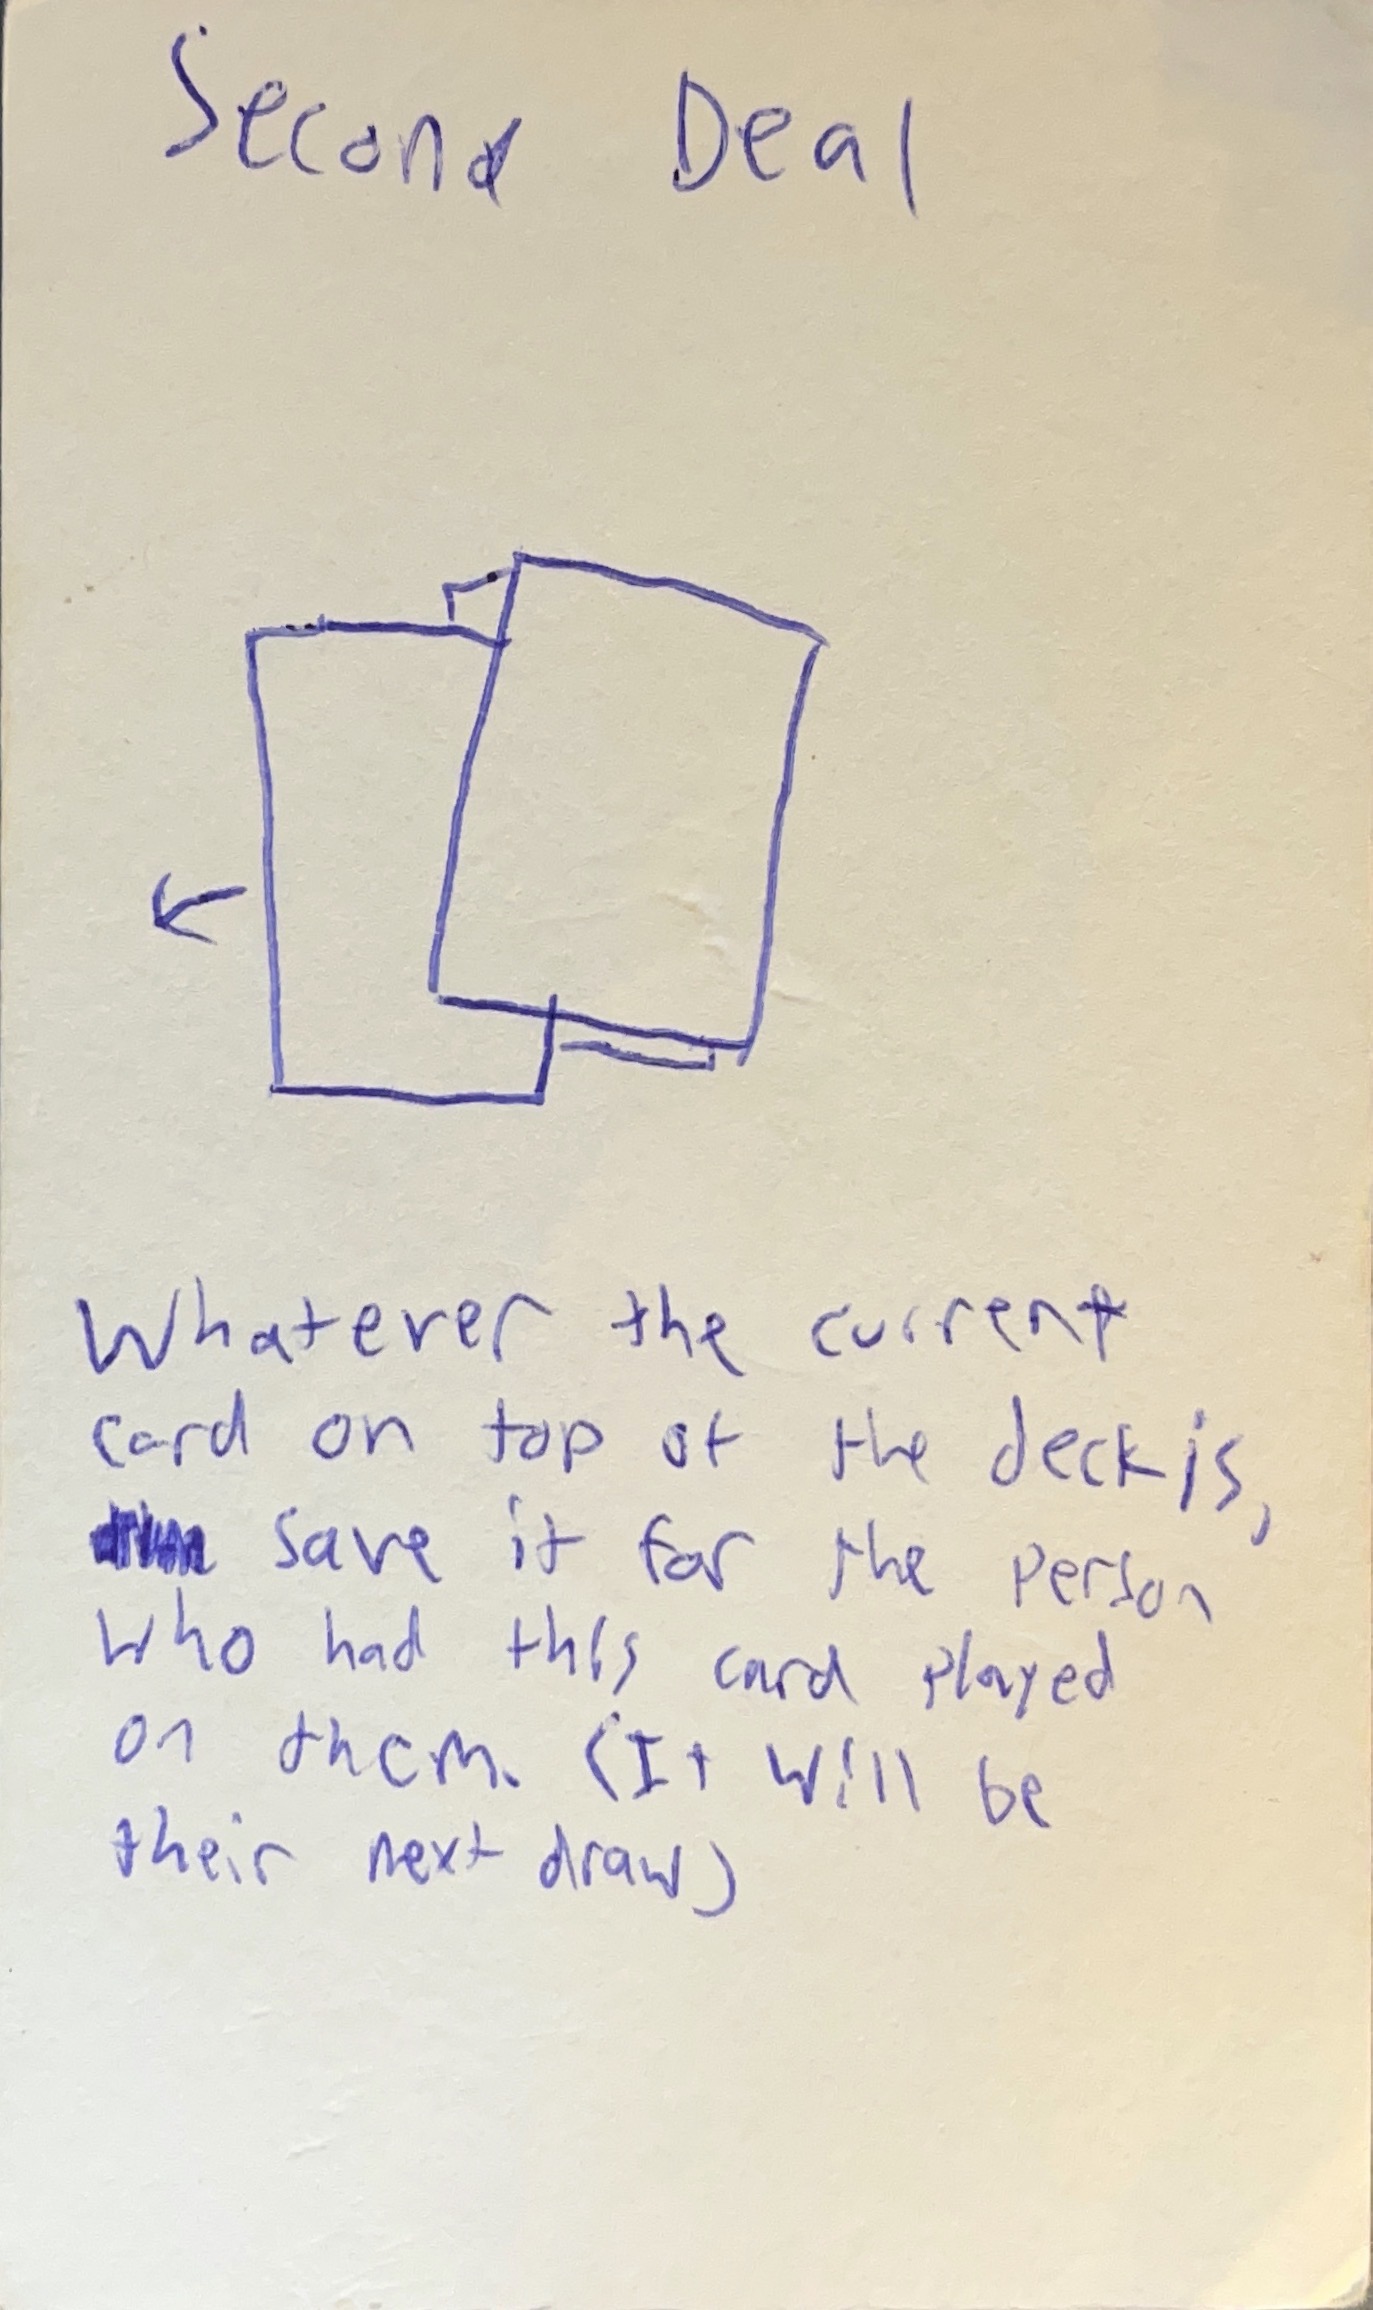 Second Deal
Whatever the current
card on top of the deck is,
save it for the person
who had this card played
on them. (It will be
their next draw)